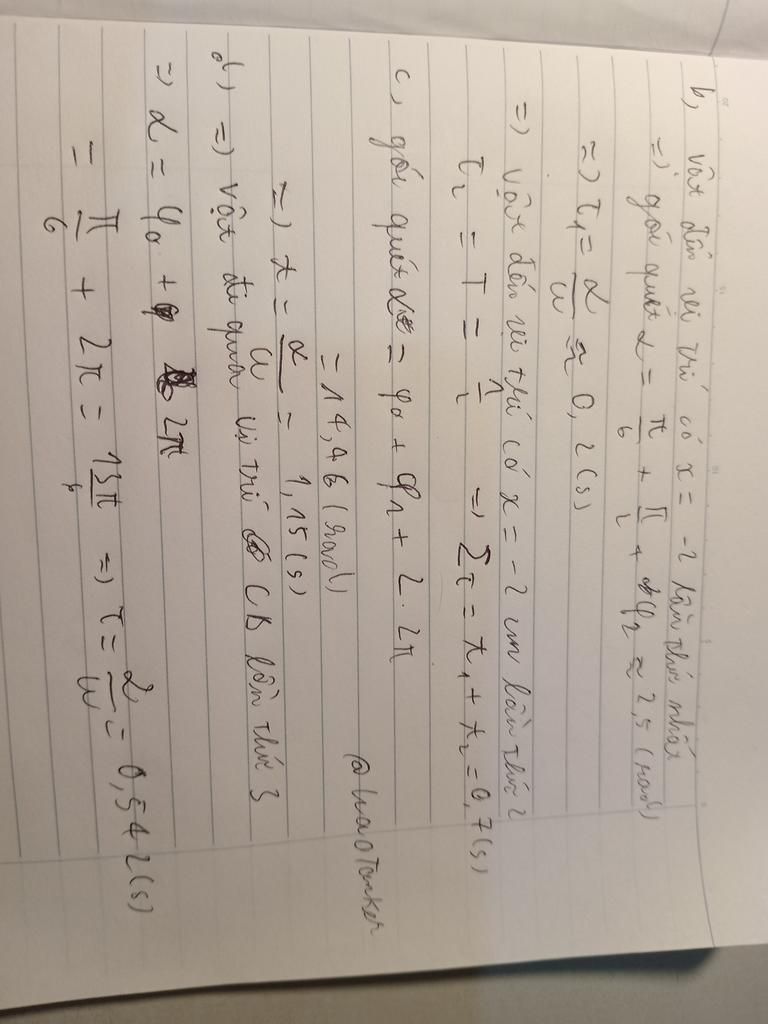 b, vật đến vị trí có x = -2 lần thứ nhất
=> góc quét α = π/6 + π/2 + φ₂ ≈ 2,5 (rad)
=> t₁ = α/ω ≈ 0,2 (s)
=> vật đến vị trí có x = -2 cm lần thứ 2
t₂ = T = 1/2 => Σt = t₁ + t₂ = 0,7 (s)
c, góc quét α = φ₀ + φ₁ + 2.2π
= 14,46 (rad)
@haoTanker
=> t = α/ω = 1,15 (s)
d, => vật đi qua vị trí CB lần thứ 3
=> α = φ₀ + 2π
= π/6 + 2π = 13π/6 => t = α/ω = 0,542 (s)